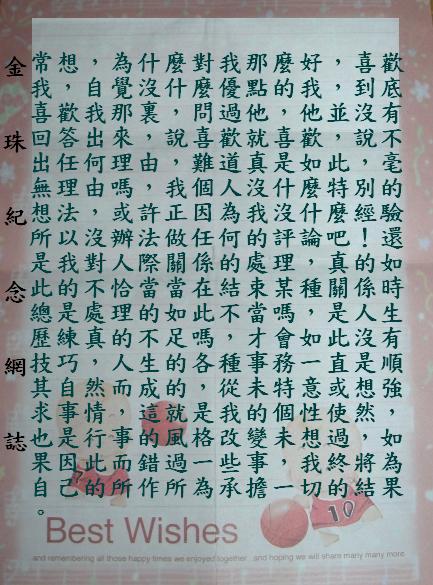 金珠紀念網誌
常想，為什麼對我那麼好，喜歡
我，自覺沒什麼優點的我，到底
喜歡我那裏，問過他，他並沒有
回答出來，說喜歡就喜歡，說不
出任何理由，難道真是如此，毫
無理由嗎，我個人沒什麼特別的
想法，或許正因為我沒什麼經驗
所以沒辦法做任何的評論吧！還
是我對人際關係的處理，真的如
此的不恰當，在結束某種關係時
總是處理的如此不當嗎，是人生
歷練真的不足嗎，才會如此沒有
技巧，人生的各種事務，一直是順
其自然而成的，從未特意或想強
求事情，這就是我的個性使然，
也是行事的風格，未想過改變，如
果因此而錯過一些事，我終將為
自己的所作所為承擔一切的結果
。
Best Wishes
and remembering all those happy times we enjoyed together...and hoping we will share many many more
10